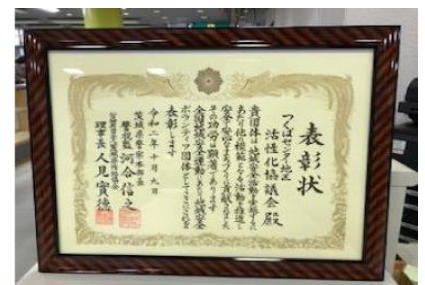 表彰状
つくばセンター地区
活性化協議会殿
貴団体は地域安全活動を推進するに
あたり他の模範となる活動を推進し
安全で安心なまちづくりに貢献されました
その功労は顕著であります
全国地域安全運動にあたり地域安全
ボランティア団体としてここにこれを
表彰します
令和二年十月九日
茨城県警察本部長
警視監 河合信之
理事長 人見實徳